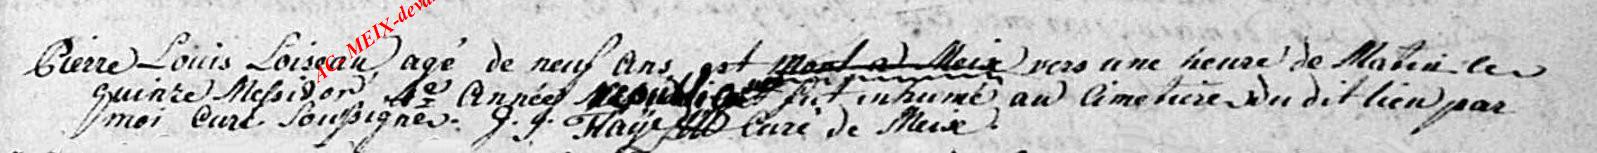 AC MEIX-deva
Pierre Louis Loiseau agé de neuf ans est mort a Meix vers une heure de Matin le
quinze Messidor 4e Année republique fut inhumé au Cimetiere du dit lieu par
moi Curé Soussigné. J. J. Curé de Meix.